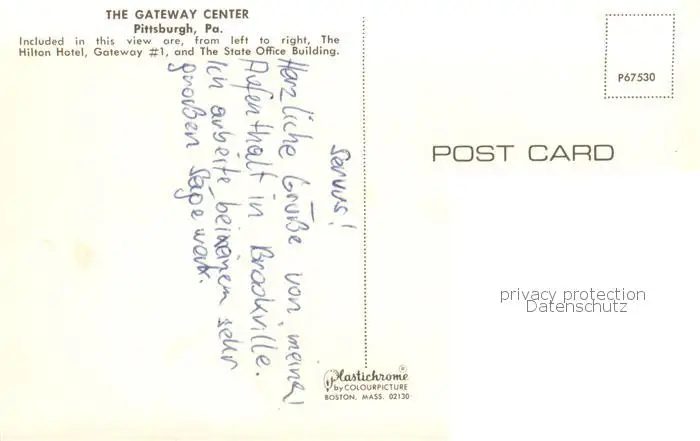 THE GATEWAY CENTER
Pittsburgh, Pa.
Included in this view are, from left to right, The
Hilton Hotel, Gateway #1, and The State Office Building.
Servus!
Herzliche Grüße von meinem
Aufenthalt in Brookville.
Ich arbeite bei einem sehr
großen Sägewerk.
P67530
POST CARD
privacy protection
Datenschutz
Plastichrome®
by COLOURPICTURE
BOSTON, MASS. 02130